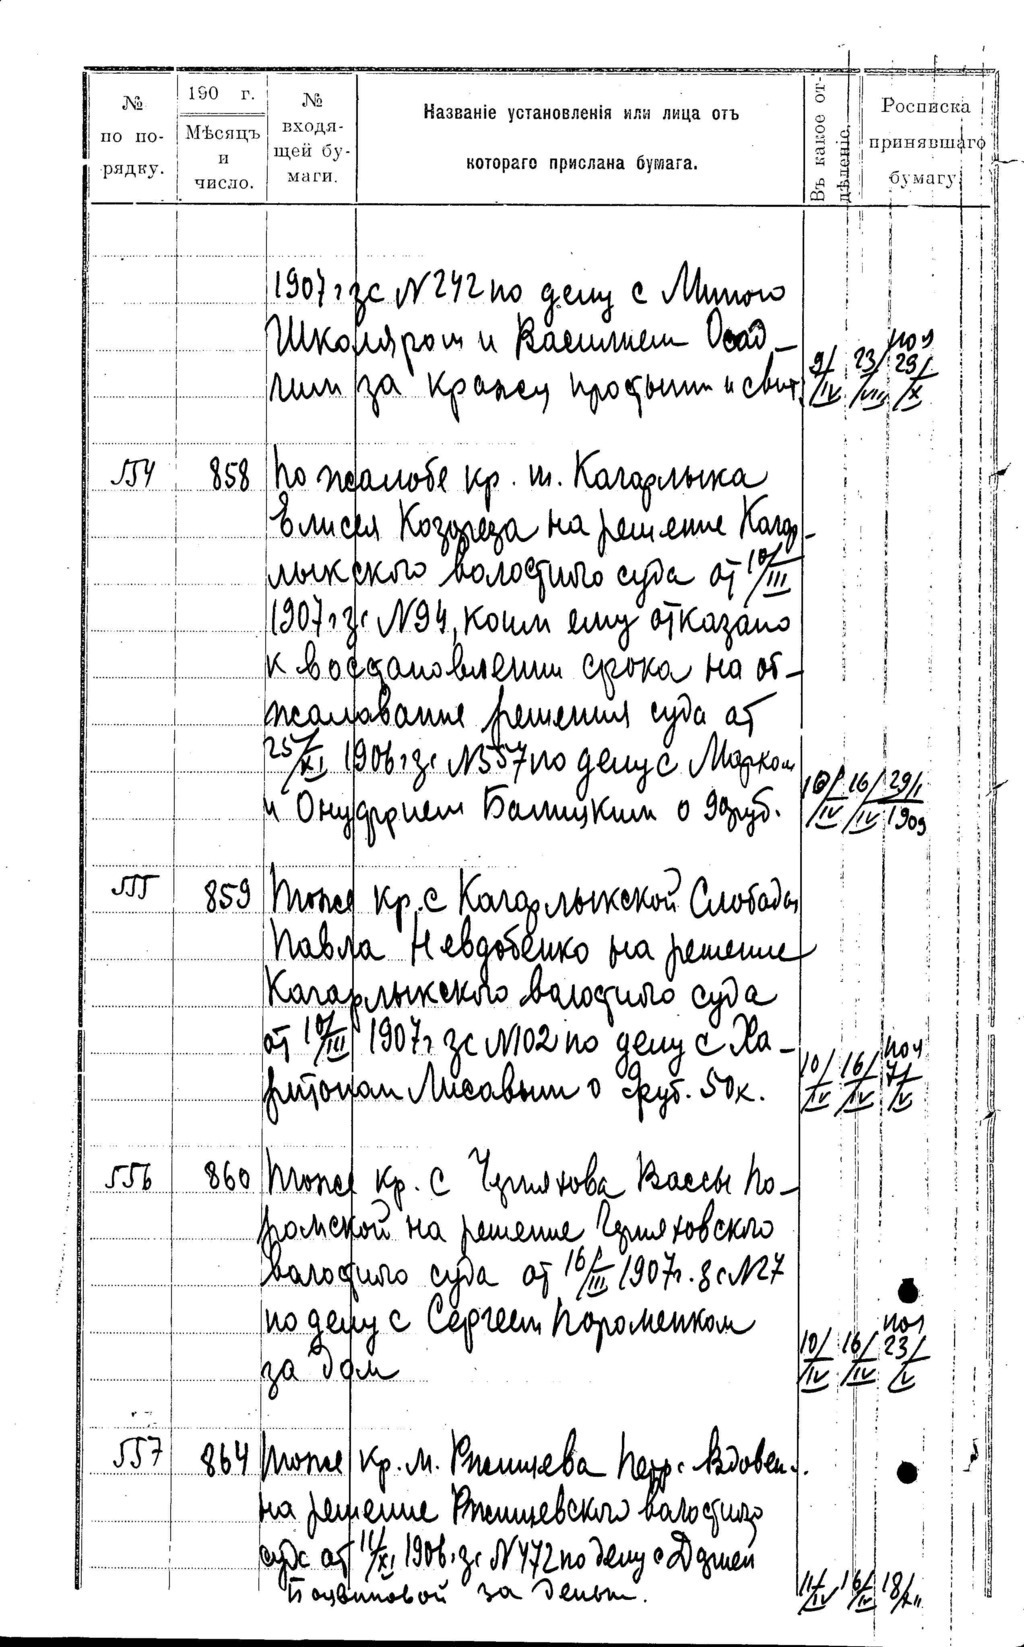 № по порядку. 190 г. Мѣсяцъ и число. № входящей бумаги. Названіе установленія или лица отъ котораго прислана бумага. Въ какое отдѣленіе. Росписка принявшаго бумагу
1907 г за N 242 по делу с
Школяром и Василием Осад-
чим за кражу простыни и свит
9/IV 23/VIII 29/X
554 858 По жалобе кр. м. Кагарлыка
Елисея Козореза на решение Кагар-
лыкского волостного суда от 10/III
1907 г за N 94, коим ему отказано
к востановлении срока на об-
жалование решения суда от
25/XI 1906 г за N 557 по делу с Марком
и Онуфрием Балицким о 90 руб.
10/IV 16/IV 29/I 1909
555 859 Тоже кр. с Кагарлыкской Слободы
Павла Невдобенко на решение
Кагарлыкского волостного суда
от 10/III 1907 г за N 102 по делу с Ха-
ритоном Лисавым о руб. 50 к.
10/IV 16/IV 7/V
556 860 Тоже кр. с Черняхова Вассы По-
ромской на решение Черняховского
волостного суда от 16/III 1907 г. за N 27
по делу с Сергеем Пороменком
за дом
10/IV 16/IV 23/V
557 864 Тоже кр. м. Ржищева Петр. Вдовен.
на решение Ржищевского волостного
суда от 11/XI 1906 г за N 472 по делу с
за деньги.
11/IV 16/IV 18/XII